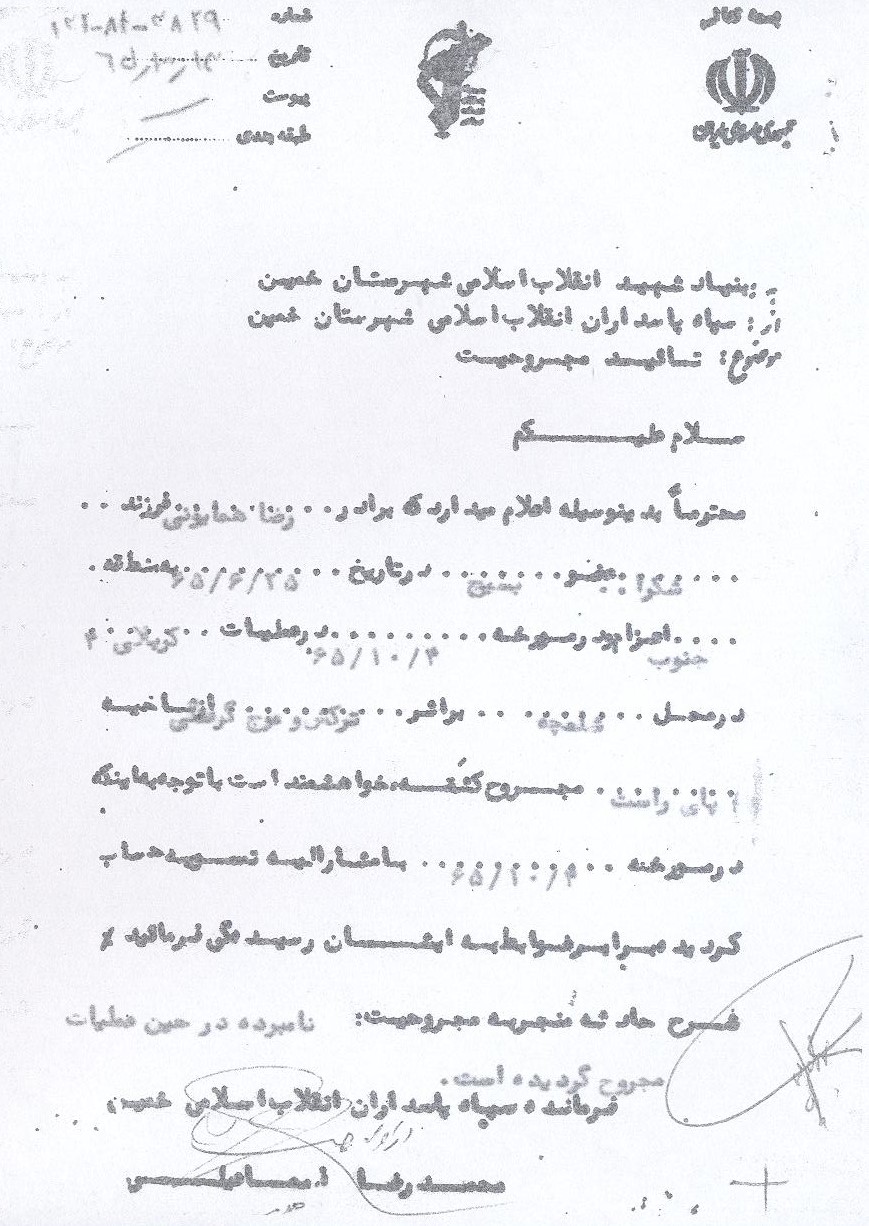 بسمه تعالی
جمهوری اسلامی ایران
شماره
تاریخ
پیوست
طبقه بندی
به: بنیاد شهید انقلاب اسلامی شهرستان خمین
از: سپاه پاسداران انقلاب اسلامی شهرستان خمین
موضوع: تائید مجروحیت
سلام علیکم
محترماً بدینوسیله اعلام میدارد که برادر... رضا همایونی فرزند ..
شکرا... عضو بسیج در تاریخ ۶۵/۶/۲۵ به منطقه
جنوب اعزام و در مورخه ۶۵/۱۰/۴ در عملیات کربلای ۴
در محل شلمچه بر اثر ترکش و موج گرفتگی از ناحیه
پای راست مجروح گشته، خواهشمند است با توجه به اینکه
در مورخه ۶۵/۱۰/۴ با مشارالیه تسویه حساب
گردید برابر ضوابط به ایشان رسیدگی فرمائید
شرح حادثه منجر به مجروحیت: نامبرده در حین عملیات
مجروح گردیده است.
فرمانده سپاه پاسداران انقلاب اسلامی خمین
محمدرضا